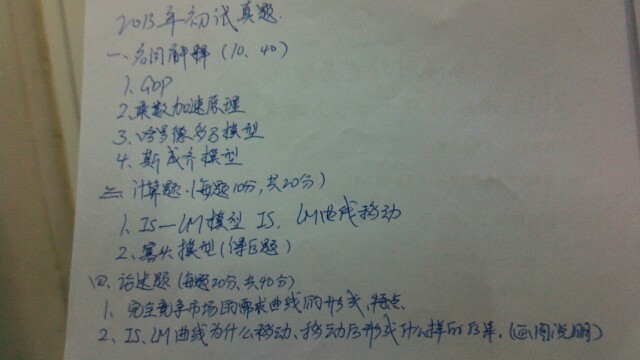 2013年初试真题.
一、名词解释（10、40）
1. GDP
2. 乘数加速原理
3. 哈罗德多马模型
4. 斯威齐模型
三、计算题.（每题10分，共20分）
1. IS—LM模型 IS、LM曲线移动
2. 寡头模型（得B题）
四、论述题（每题20分、共40分）
1、完全竞争市场的需求曲线的形式，特点.
2、IS、LM曲线为什么移动、移动后形成什么样的结果.（画图说明）